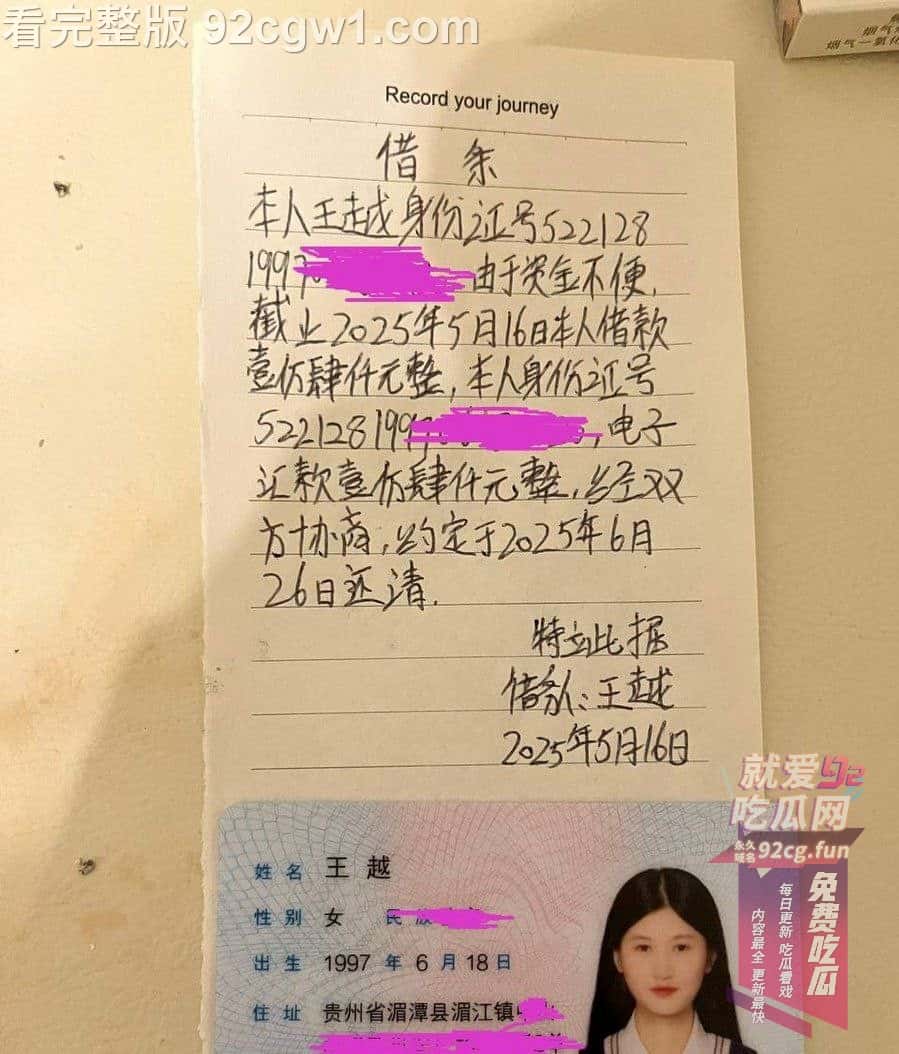 看完整版 92cgw1.com
烟气一氧化
Record your journey
借条
本人王越身份证号522128
1997 由于资金不便,
截止2025年5月16日本人借款
壹仿肆仟元整,本人身份证号
5221281997 ,电子
汇款壹仿肆仟元整,经双
方协商,约定于2025年6月
26日还清.
特立此据
借条人:王越
2025年5月16日
姓名 王越
性别 女 民族
出生 1997年6月18日
住址 贵州省湄潭县湄江镇
就爱92
吃瓜网
永久域名 92cg.fun
免费吃瓜
每日更新 吃瓜看戏
内容最全 更新最快